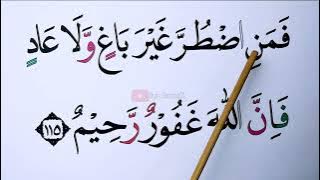 فَمَنِ اضْطُرَّ غَيْرَ بَاغٍ وَّلَا عَادٍ
فَاِنَّ اللّٰهَ غَفُوْرٌ رَّحِيْمٌ ۝١١٥